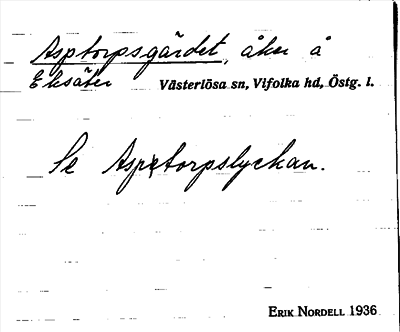 Asptorpsgärdet, åker å
Eksäter Västerlösa sn, Vifolka hd, Östg. l.
Se Asptorpslyckan.
ERIK NORDELL 1936